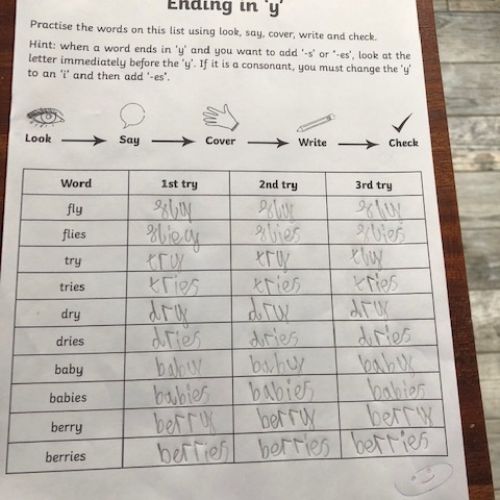 Ending in 'y'
Practise the words on this list using look, say, cover, write and check.
Hint: when a word ends in 'y' and you want to add '-s' or '-es', look at the
letter immediately before the 'y'. If it is a consonant, you must change the 'y'
to an 'i' and then add '-es'.
Look Say Cover Write Check
Word 1st try 2nd try 3rd try
fly fly fly fly
flies flies flies
try try try
tries tries tries tries
dry dry dry dry
dries dries dries dries
baby baby baby baby
babies babies babies babies
berry berry berry berry
berries berries berries berries